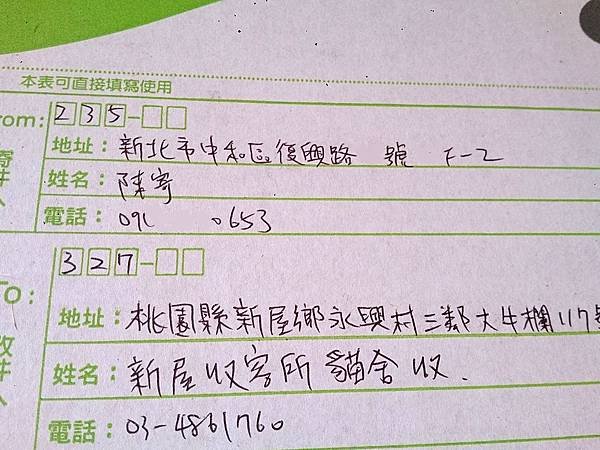 本表可直接填寫使用
From: 235-
地址：新北市中和區復興路 號 F-2
寄件人 姓名：陳寄
電話：091 0653
327-
To: 地址：桃園縣新屋鄉永興村三鄰大牛欄117號
收件人 姓名：新屋收容所 貓舍 收.
電話：03-4861760